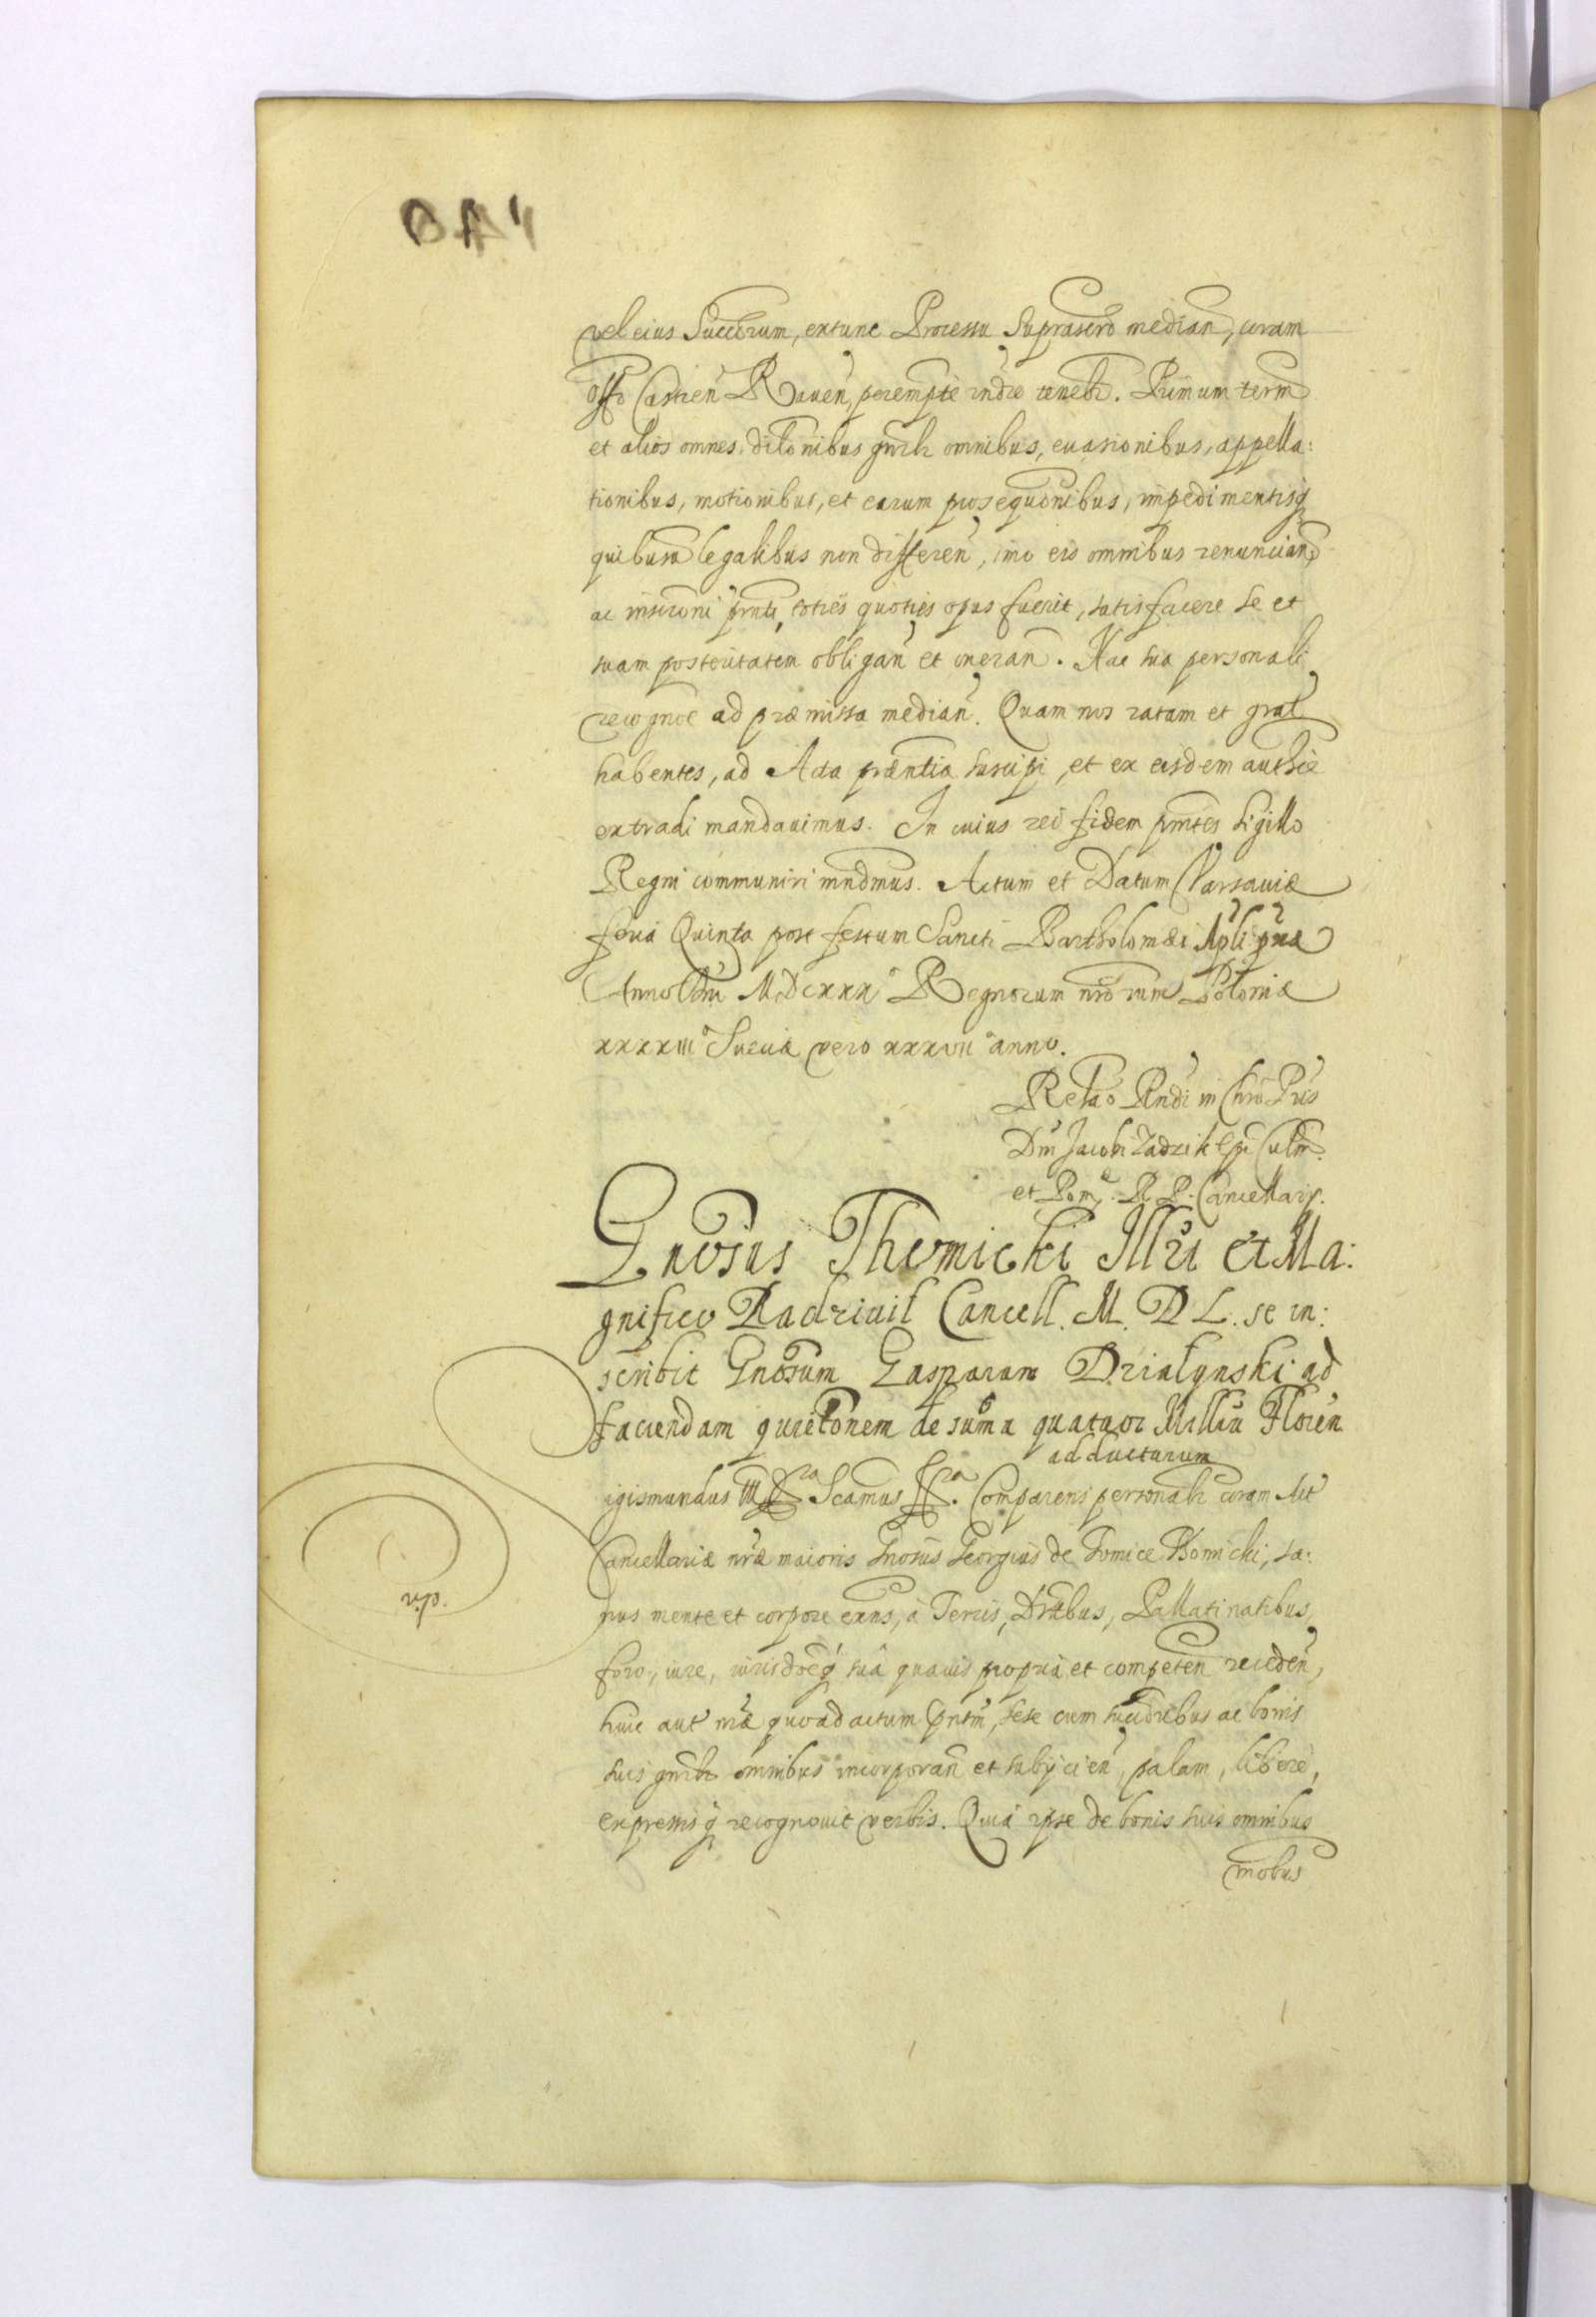 vel eius Succôrum, extunc Processu suprascrõ median̄, coram
Offõ Castren̄ Rauen̄, perempte rñdre tenebr̃. Primum term̃
et alios omnes, dilõnibus gñrlr omnibus, euasionibus, appella:
tionibus, motionibus, et earum prosequõnibus, impedimentisq̃
quibusũ legalibus non differen̄, imo eis omnibus renuncian̄,
ac inscrõni pñti, toties quoties opus fuerit, satisfacere se et
suam posteritatem obligan̄ et oneran̄. Hac sua personali
recognõe ad præmissa median̄. Quam nos ratam et grat̃
habentes, ad Acta præntia suscipi, et ex eisdem authẽ
extradi mandauimus. In cuius rei fidem pñtes sigillo
Regni communiri mñdmus. Actum et Datum Varsauiæ
feria Quinta post festum Sancti Bartholomæi Apli pña
Anno Dñi MDCXXX° Regnorum nrõrum Poloniæ
xxxxiii° Sueciæ vero xxxvii° anno.
Relaõ Rñdi in Chrõ Pr̃is
Dñi Jacobi Zadzik Epi Culm̃.
et Pom̃. R. P. Cancellarÿ.
Gnõsus Thomicki Illri et Ma:
gnifico Radziuil Cancell. M. D L. se in:
scribit Gnõsum Gasparam Dzialynski ad
faciendam quietõnem de suma quatuor Milliũ Floren̄
adducturum
igismundus III D ra Scamus SS a. Comparens personalr̃ coram Act̃
Cancellariæ nr̃æ maioris Gnosus Georgius de Tomice Thomicki, sa:
nus mente et corpore exñs, à Terris, Distr̃bus, Pallatinatibus,
foro, iure, iurisdõeq̃ suâ quauis propriâ et competen̄ receden̄,
huic aut̃ nr̃æ quoad actum pñtm̃, sese cum succr̃ibus ac bonis
suis gñrlr̃ omnibus incorporan̄ et subÿcien̄, palam, libere,
expressisq̃ recognouit verbis. Quia ipse de bonis suis omnibus
mobus
v.p.